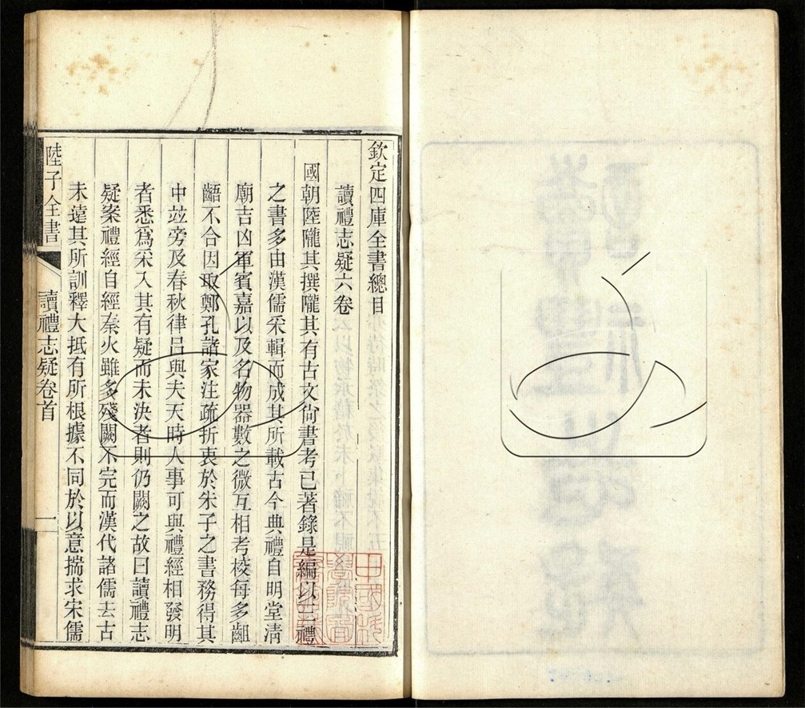 欽定四庫全書總目
讀禮志疑六卷
國朝陸隴其撰隴其有古文尚書考已著錄是編以三禮
之書多由漢儒采輯而成其所載古今典禮自明堂清
廟吉凶軍賓嘉以及名物器數之微互相考校每多齟
齬不合因取鄭孔諸家注疏折衷於朱子之書務得其
中竝旁及春秋律呂與夫天時人事可與禮經相發明
者悉爲采入其有疑而未決者則仍闕之故曰讀禮志
疑案禮經自經秦火雖多殘闕不完而漢代諸儒去古
未遠其所訓釋大抵有所根據不同於以意揣求宋儒
陸子全書
讀禮志疑卷首
二